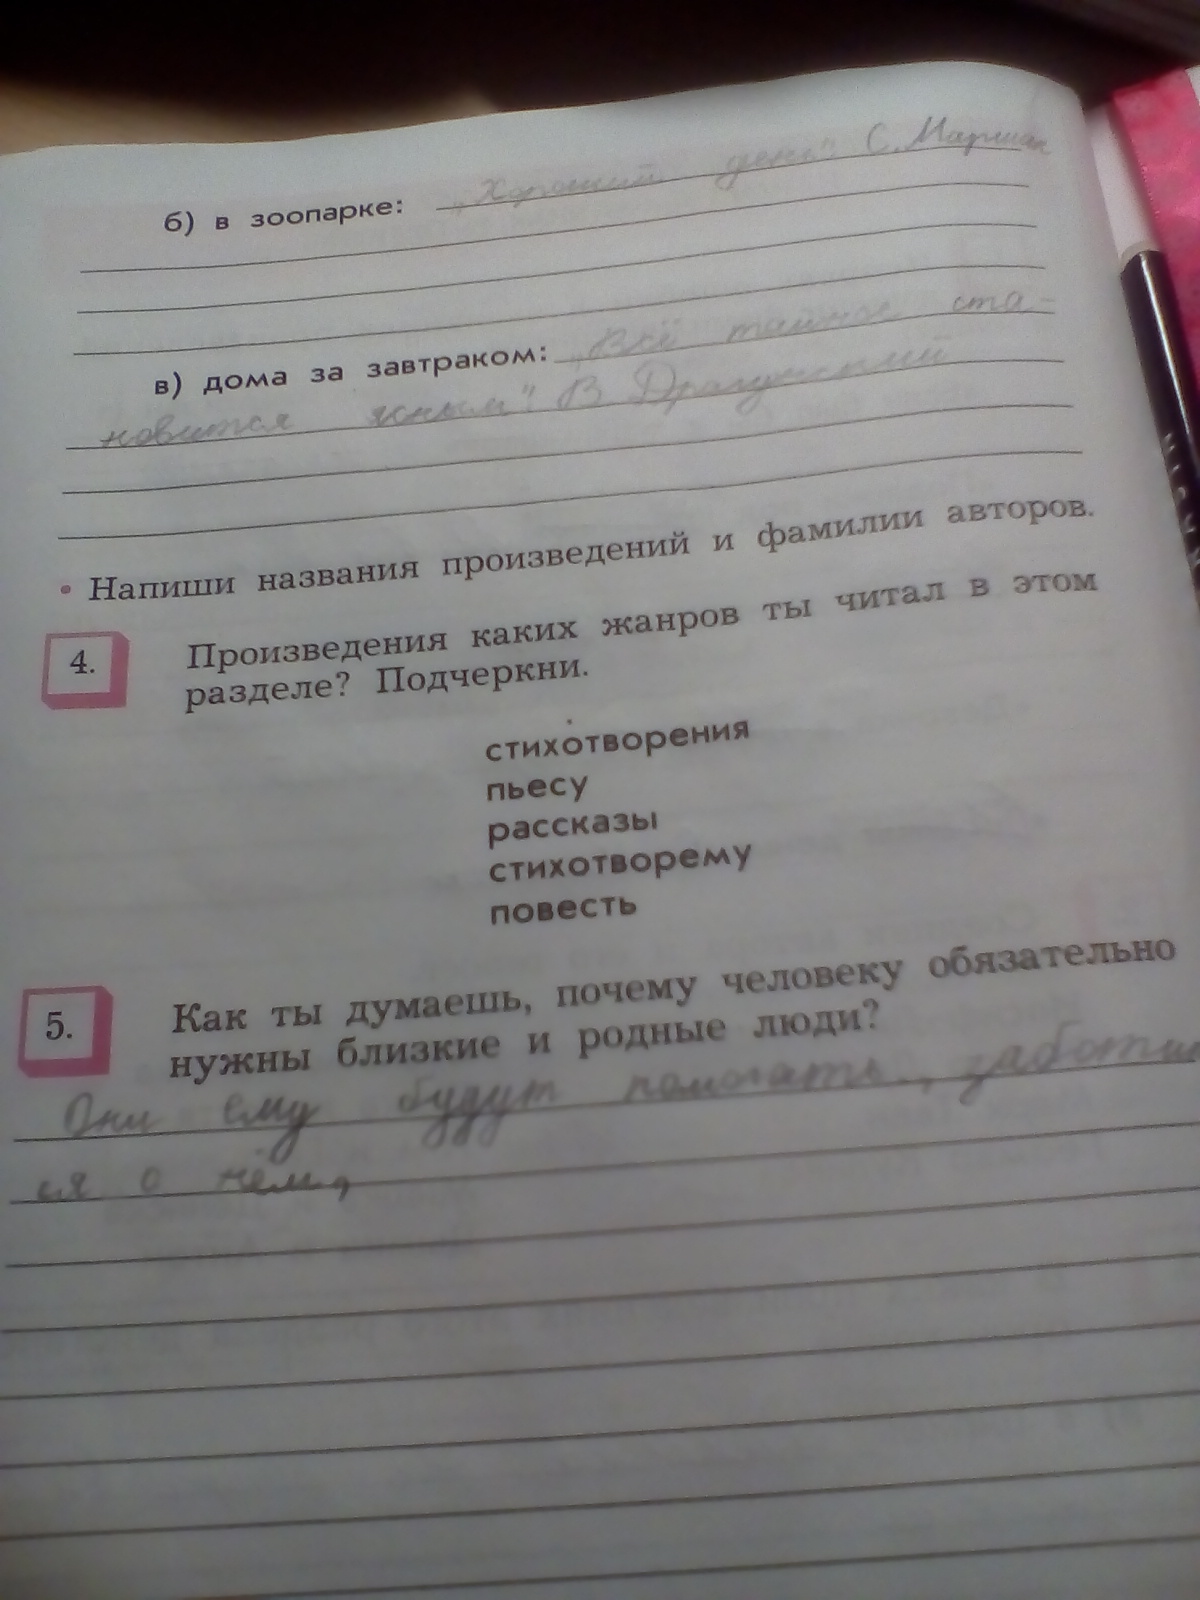 б) в зоопарке: „Хороший день". С. Маршак
в) дома за завтраком: „Всё тайное ста-
новится ясным". В Драгунский
• Напиши названия произведений и фамилии авторов.
4. Произведения каких жанров ты читал в этом
разделе? Подчеркни.
стихотворения
пьесу
рассказы
стихотворему
повесть
5. Как ты думаешь, почему человеку обязательно
нужны близкие и родные люди?
Они ему будут помогать, заботит
ся о нём,